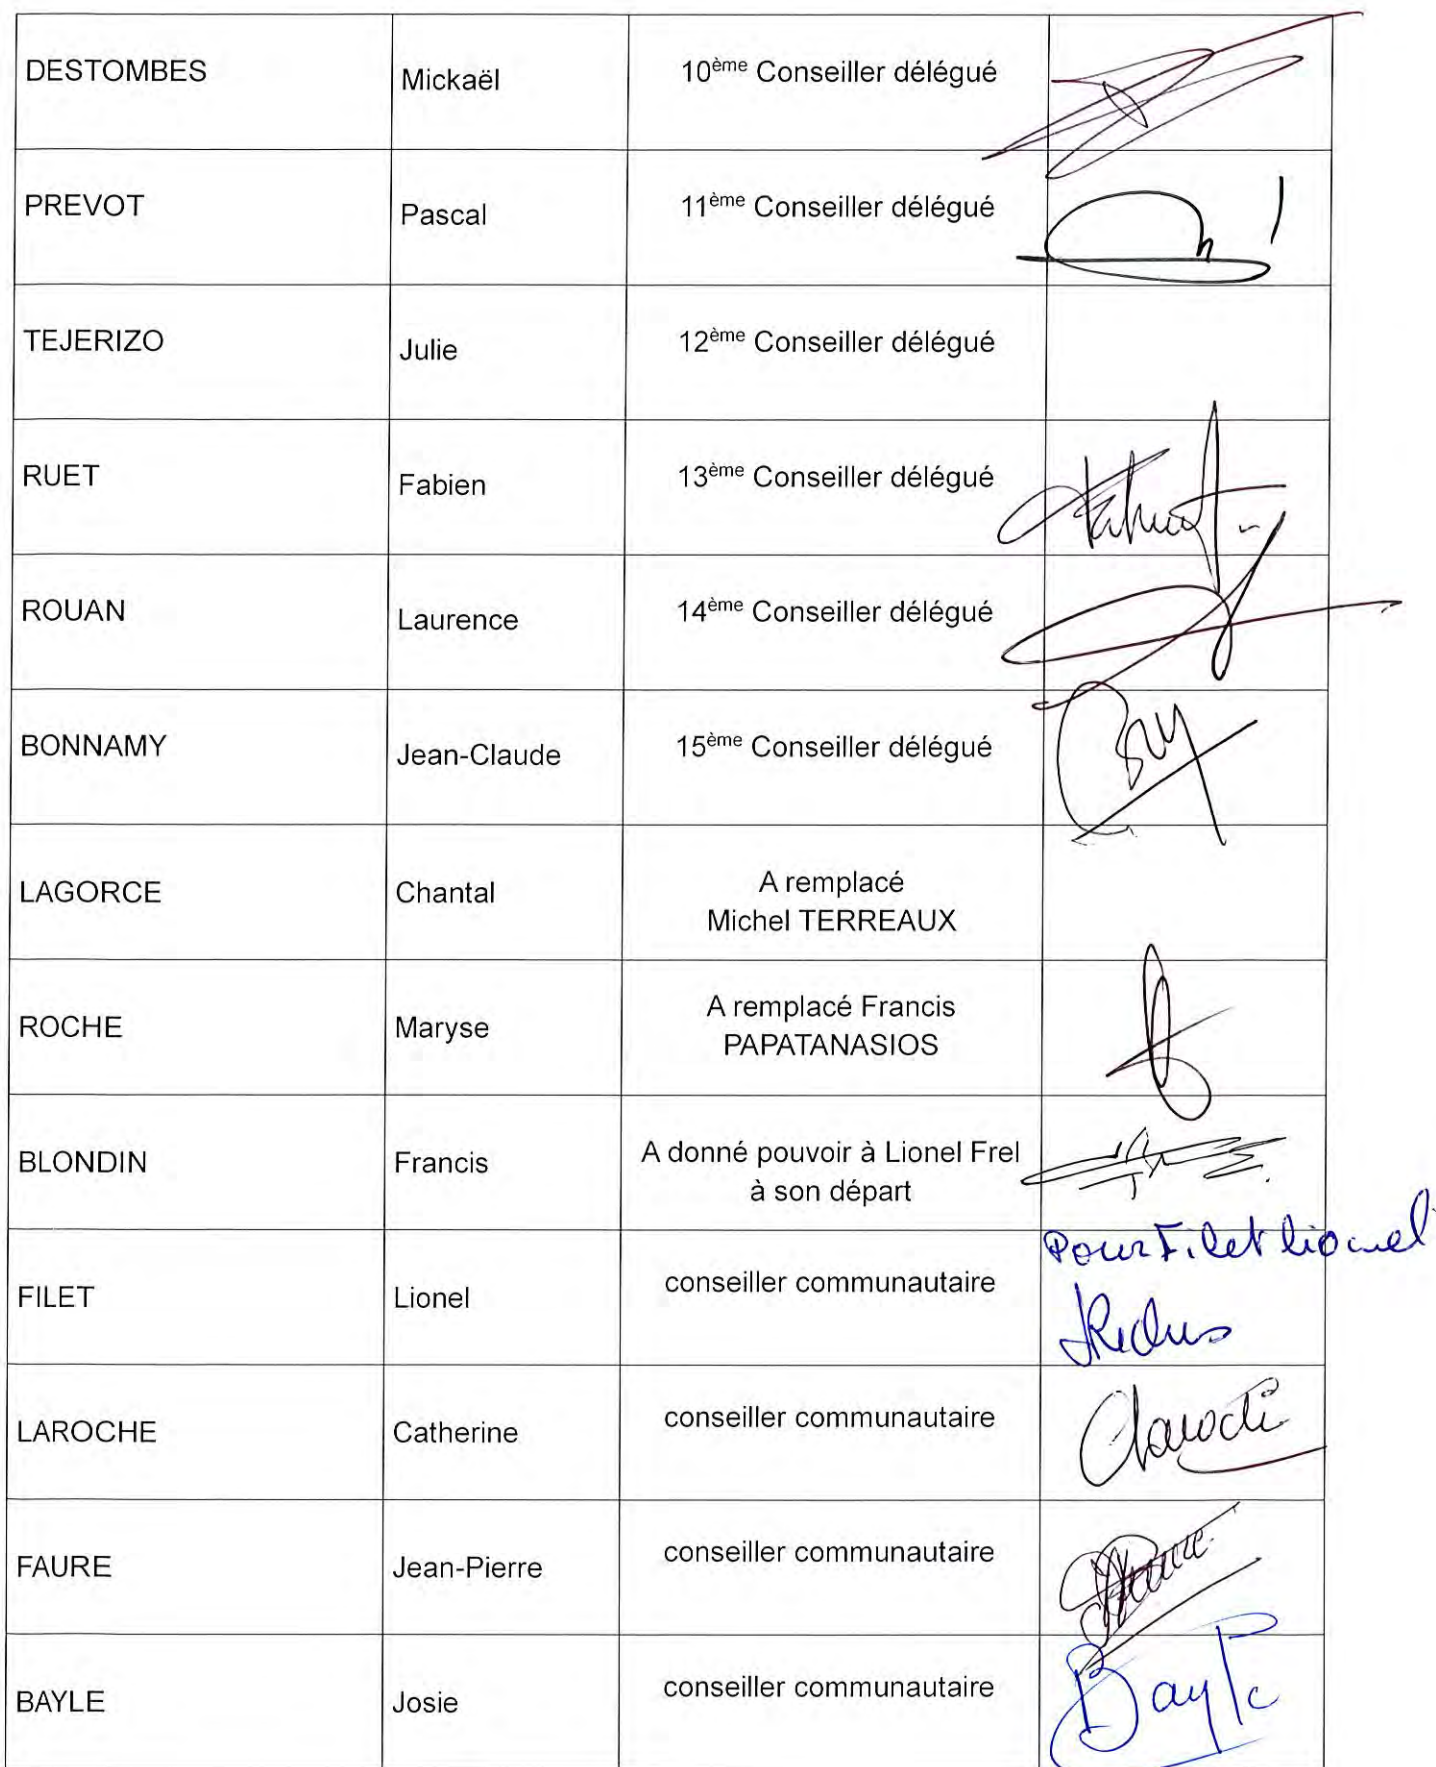 DESTOMBES Mickaël 10ème Conseiller délégué
PREVOT Pascal 11ème Conseiller délégué
TEJERIZO Julie 12ème Conseiller délégué
RUET Fabien 13ème Conseiller délégué
ROUAN Laurence 14ème Conseiller délégué
BONNAMY Jean-Claude 15ème Conseiller délégué
LAGORCE Chantal A remplacé
Michel TERREAUX
ROCHE Maryse A remplacé Francis
PAPATANASIOS
BLONDIN Francis A donné pouvoir à Lionel Frel
à son départ
Pour Filet lionel
FILET Lionel conseiller communautaire
LAROCHE Catherine conseiller communautaire
Laroche
FAURE Jean-Pierre conseiller communautaire
Faure
BAYLE Josie conseiller communautaire
Bayle